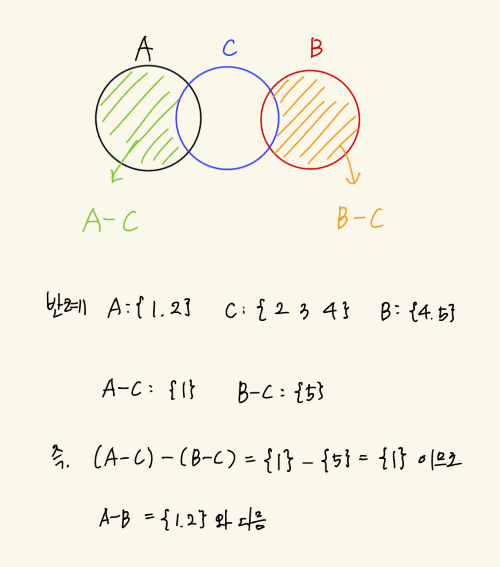 A C B
A-C B-C
반례 A:{1.2} C:{2 3 4} B:{4.5}
A-C : {1} B-C : {5}
즉. (A-C)-(B-C) = {1} - {5} = {1} 이므로
A-B = {1.2} 와 다음